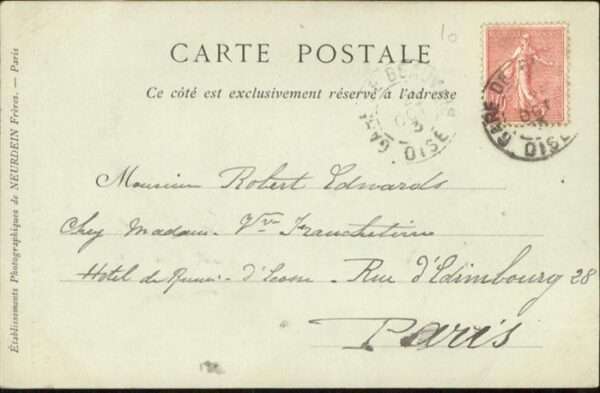 10
CARTE POSTALE
Ce côté est exclusivement réservé à l'adresse
GARE DE BEAUM OISE
GARE DE OISE
Monsieur Robert Edwards
Chez Madame Vve
Hotel de Rue d'Edimbourg 28
Paris
Établissements Photographiques de NEURDEIN Frères. — Paris